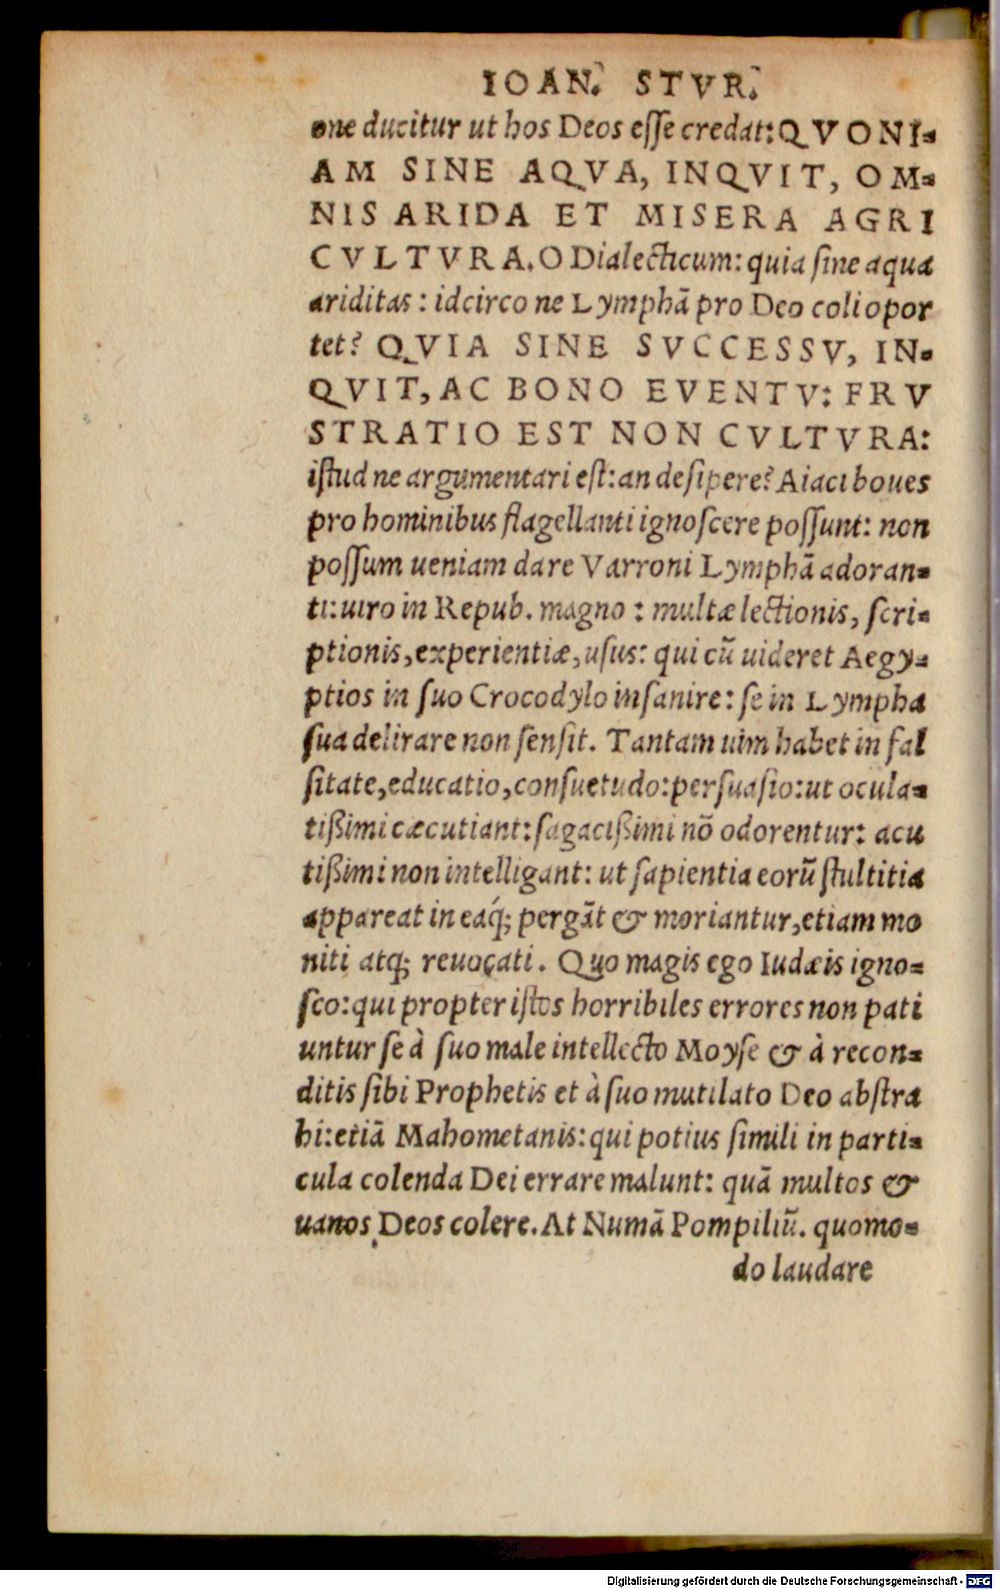 IOAN. STVR.
one ducitur ut hos Deos esse credat: QVONI-
AM SINE AQVA, INQVIT, OM-
NIS ARIDA ET MISERA AGRI
CVLTVRA. O Dialecticum: quia sine aqua
ariditas: idcirco ne Lymphā pro Deo coli opor
tet? QVIA SINE SVCCESSV, IN-
QVIT, AC BONO EVENTV: FRV
STRATIO EST NON CVLTVRA:
istud ne argumentari est: an desipere? Aiaci boues
pro hominibus flagellanti ignoscere possunt: non
possum ueniam dare Varroni Lymphā adoran-
ti: uiro in Repub. magno: multæ lectionis, scri-
ptionis, experientiæ, usus: qui cū uideret Aegy-
ptios in suo Crocodylo insanire: se in Lympha
sua delirare non sensit. Tantam uim habet in fal
sitate, educatio, consuetudo: persuasio: ut ocula-
tißimi cæcutiant: sagacißimi nō odorentur: acu
tißimi non intelligant: ut sapientia eorū stultitia
appareat in eaq́; pergāt & moriantur, etiam mo
niti atq; reuocati. Quo magis ego Iudæis igno-
sco: qui propter istos horribiles errores non pati
untur se à suo male intellecto Moyse & à recon-
ditis sibi Prophetis et à suo mutilato Deo abstra
hi: etiā Mahometanis: qui potius simili in parti-
cula colenda Dei errare malunt: quā multos &
uanos Deos colere. At Numā Pompiliū. quomo-
do laudare
Digitalisierung gefördert durch die Deutsche Forschungsgemeinschaft - DFG